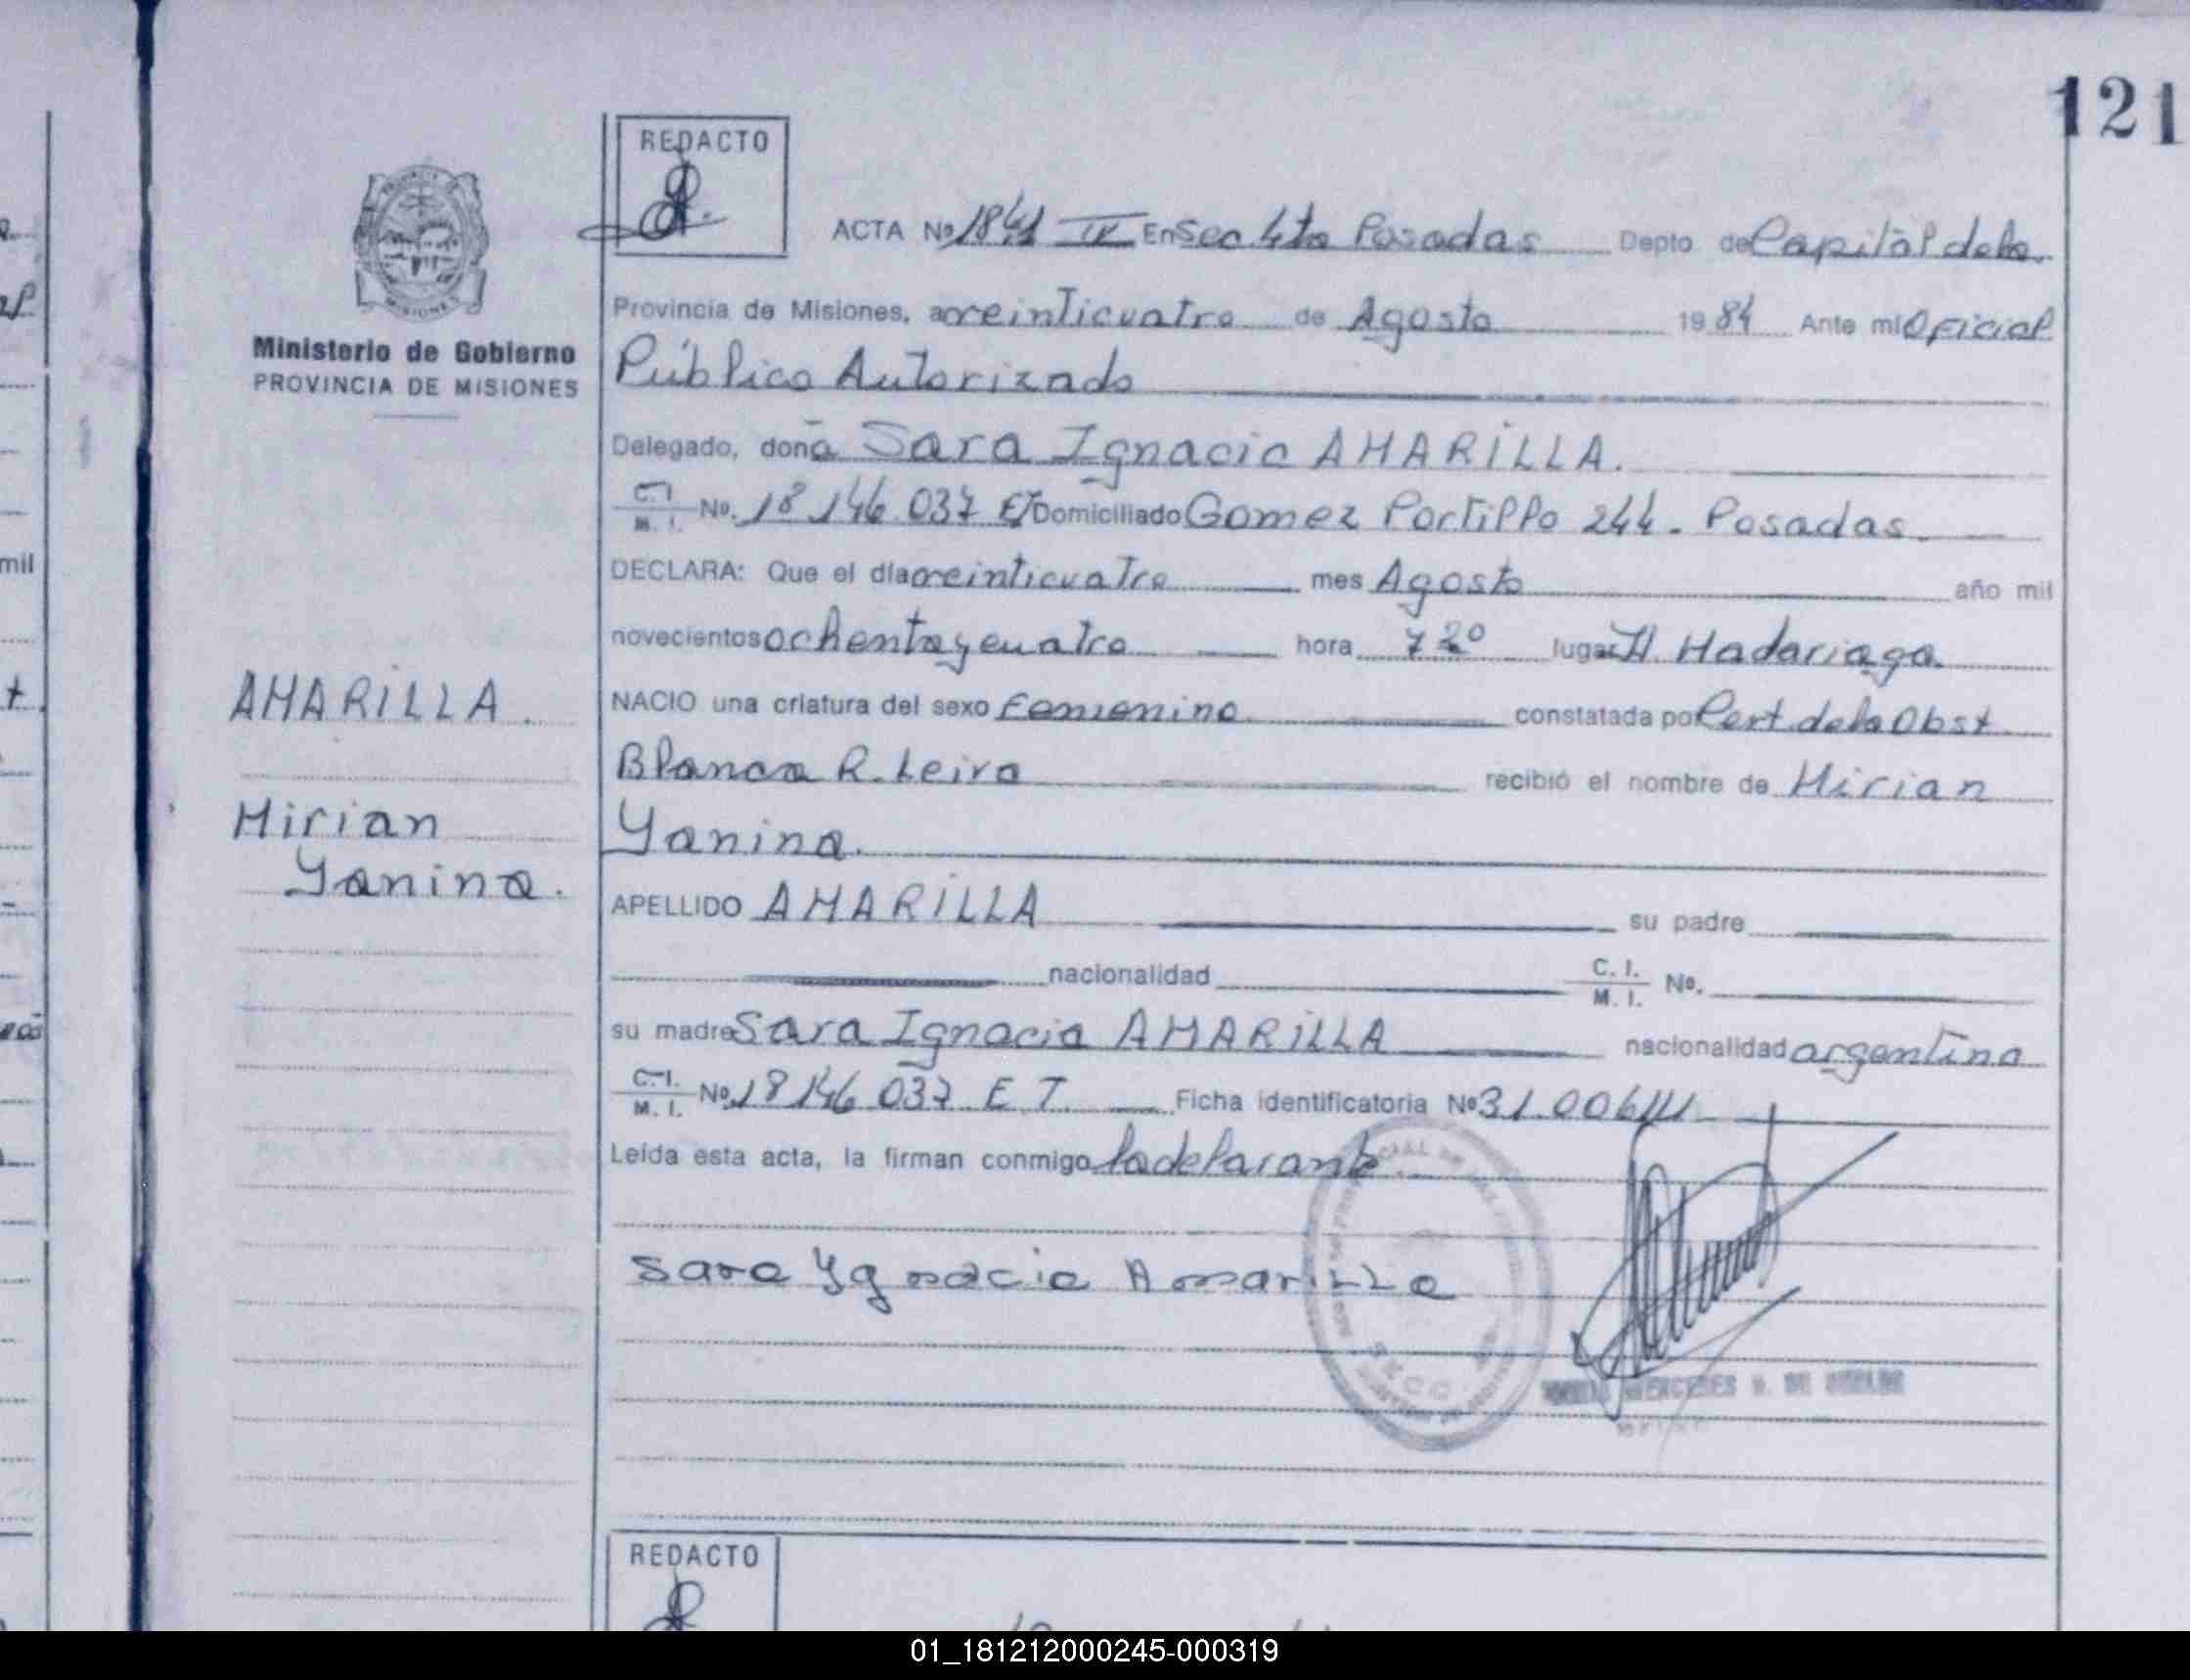 121
REDACTO
ACTA Nº 1841 IV En Sec 4ta Posadas Depto de Capital de la
Provincia de Misiones, a veinticuatro de Agosto 1984 Ante mi Oficial
Ministerio de Gobierno
PROVINCIA DE MISIONES
Público Autorizado
Delegado, doña Sara Ignacia AMARILLA.
C.I. M.I. No. 18.146.037 E/T Domiciliado Gomez Portillo 244. Posadas.
DECLARA: Que el día veinticuatro mes Agosto año mil
novecientos ochenta y cuatro hora 7 20 lugar H. Madariaga
AMARILLA.
NACIO una criatura del sexo Femenino constatada por Cert. de la Obst.
Blanca R. Leiva recibió el nombre de Mirian
Mirian
Yanina.
Yanina.
APELLIDO AMARILLA su padre
nacionalidad C. I. M. I. No.
su madre Sara Ignacia AMARILLA nacionalidad argentina
C.I. M. I. No 18146 037 E T. Ficha identificatoria Nº 31.006
Leída esta acta, la firman conmigo la delarante.
Sara Ygnacia Amarilla
MERCEDES
REDACTO
01_181212000245-000319